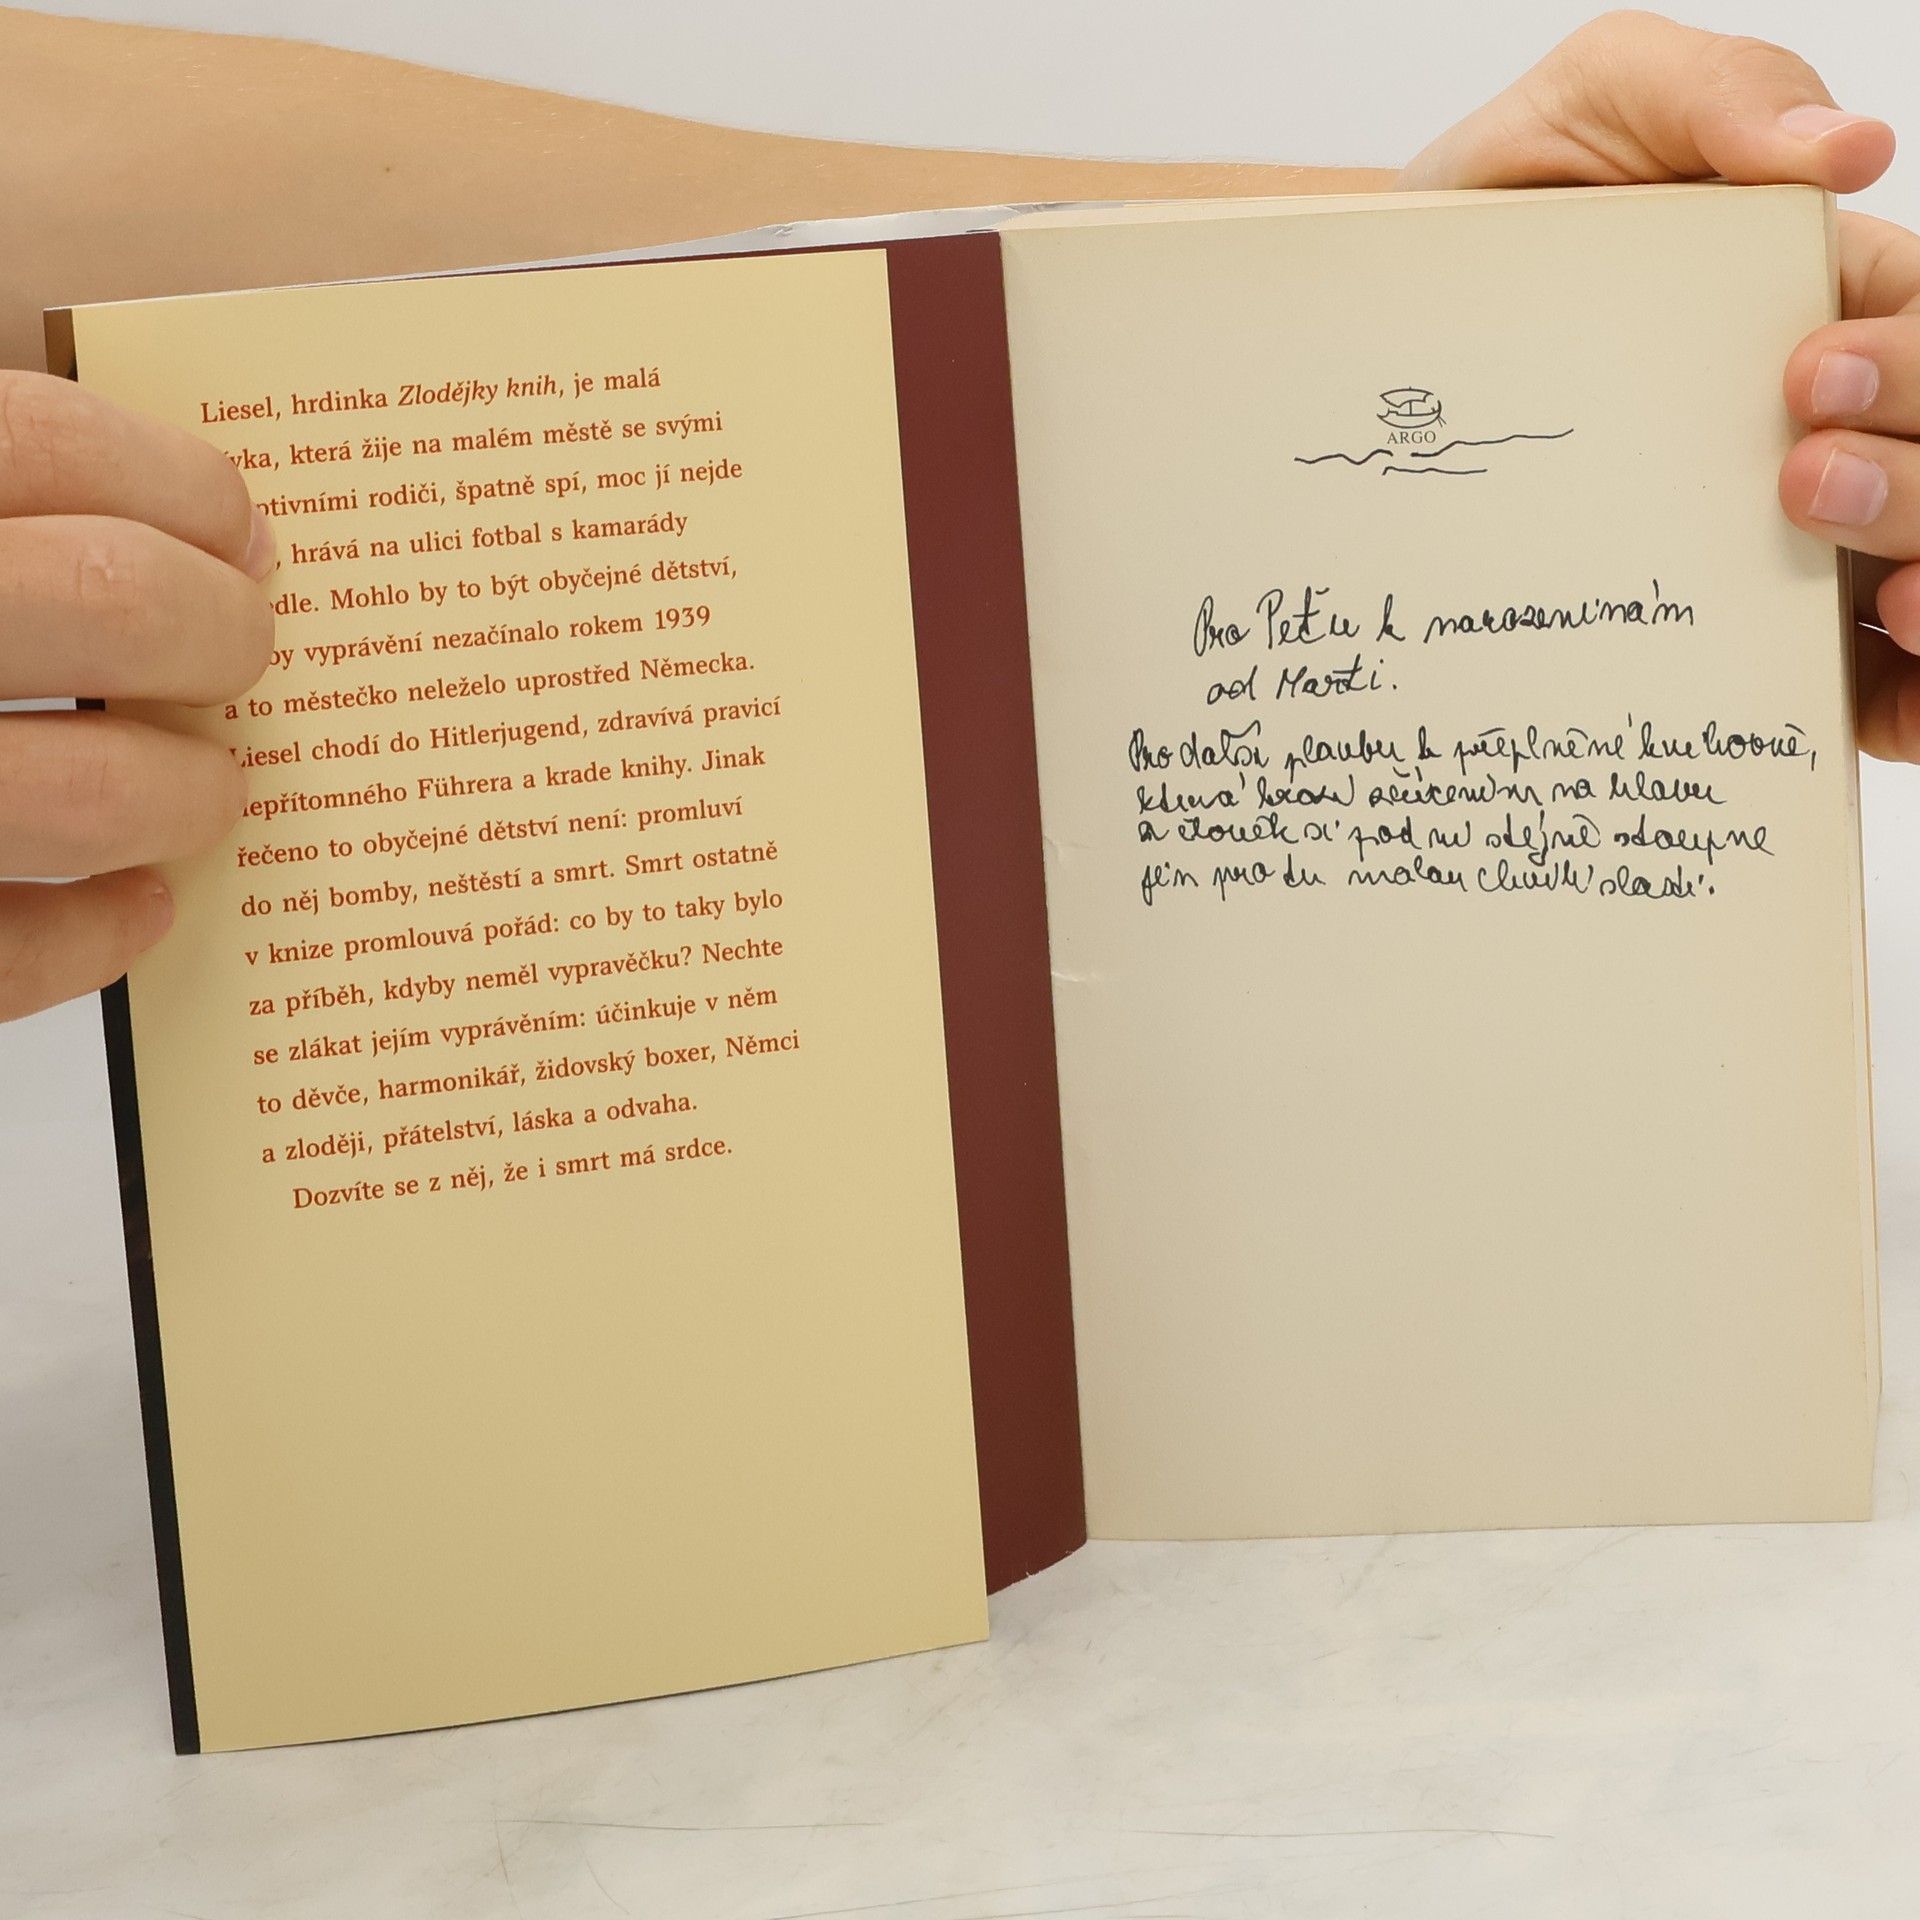 Liesel, hrdinka Zlodějky knih, je malá
vka, která žije na malém městě se svými
ptivními rodiči, špatně spí, moc jí nejde
, hrává na ulici fotbal s kamarády
edle. Mohlo by to být obyčejné dětství,
by vyprávění nezačínalo rokem 1939
a to městečko neleželo uprostřed Německa.
Liesel chodí do Hitlerjugend, zdravívá pravicí
nepřítomného Führera a krade knihy. Jinak
řečeno to obyčejné dětství není: promluví
do něj bomby, neštěstí a smrt. Smrt ostatně
v knize promlouvá pořád: co by to taky bylo
za příběh, kdyby neměl vypravěčku? Nechte
se zlákat jejím vyprávěním: účinkuje v něm
to děvče, harmonikář, židovský boxer, Němci
a zloději, přátelství, láska a odvaha.
Dozvíte se z něj, že i smrt má srdce.
ARGO
Pro Peťu k narozeninám
od Marti.
Pro další k přeplněné knihovně,
která hrozí zřícením na hlavu
a člověk si pod ni stejně stoupne
jen pro tu malou chvíli slasti.